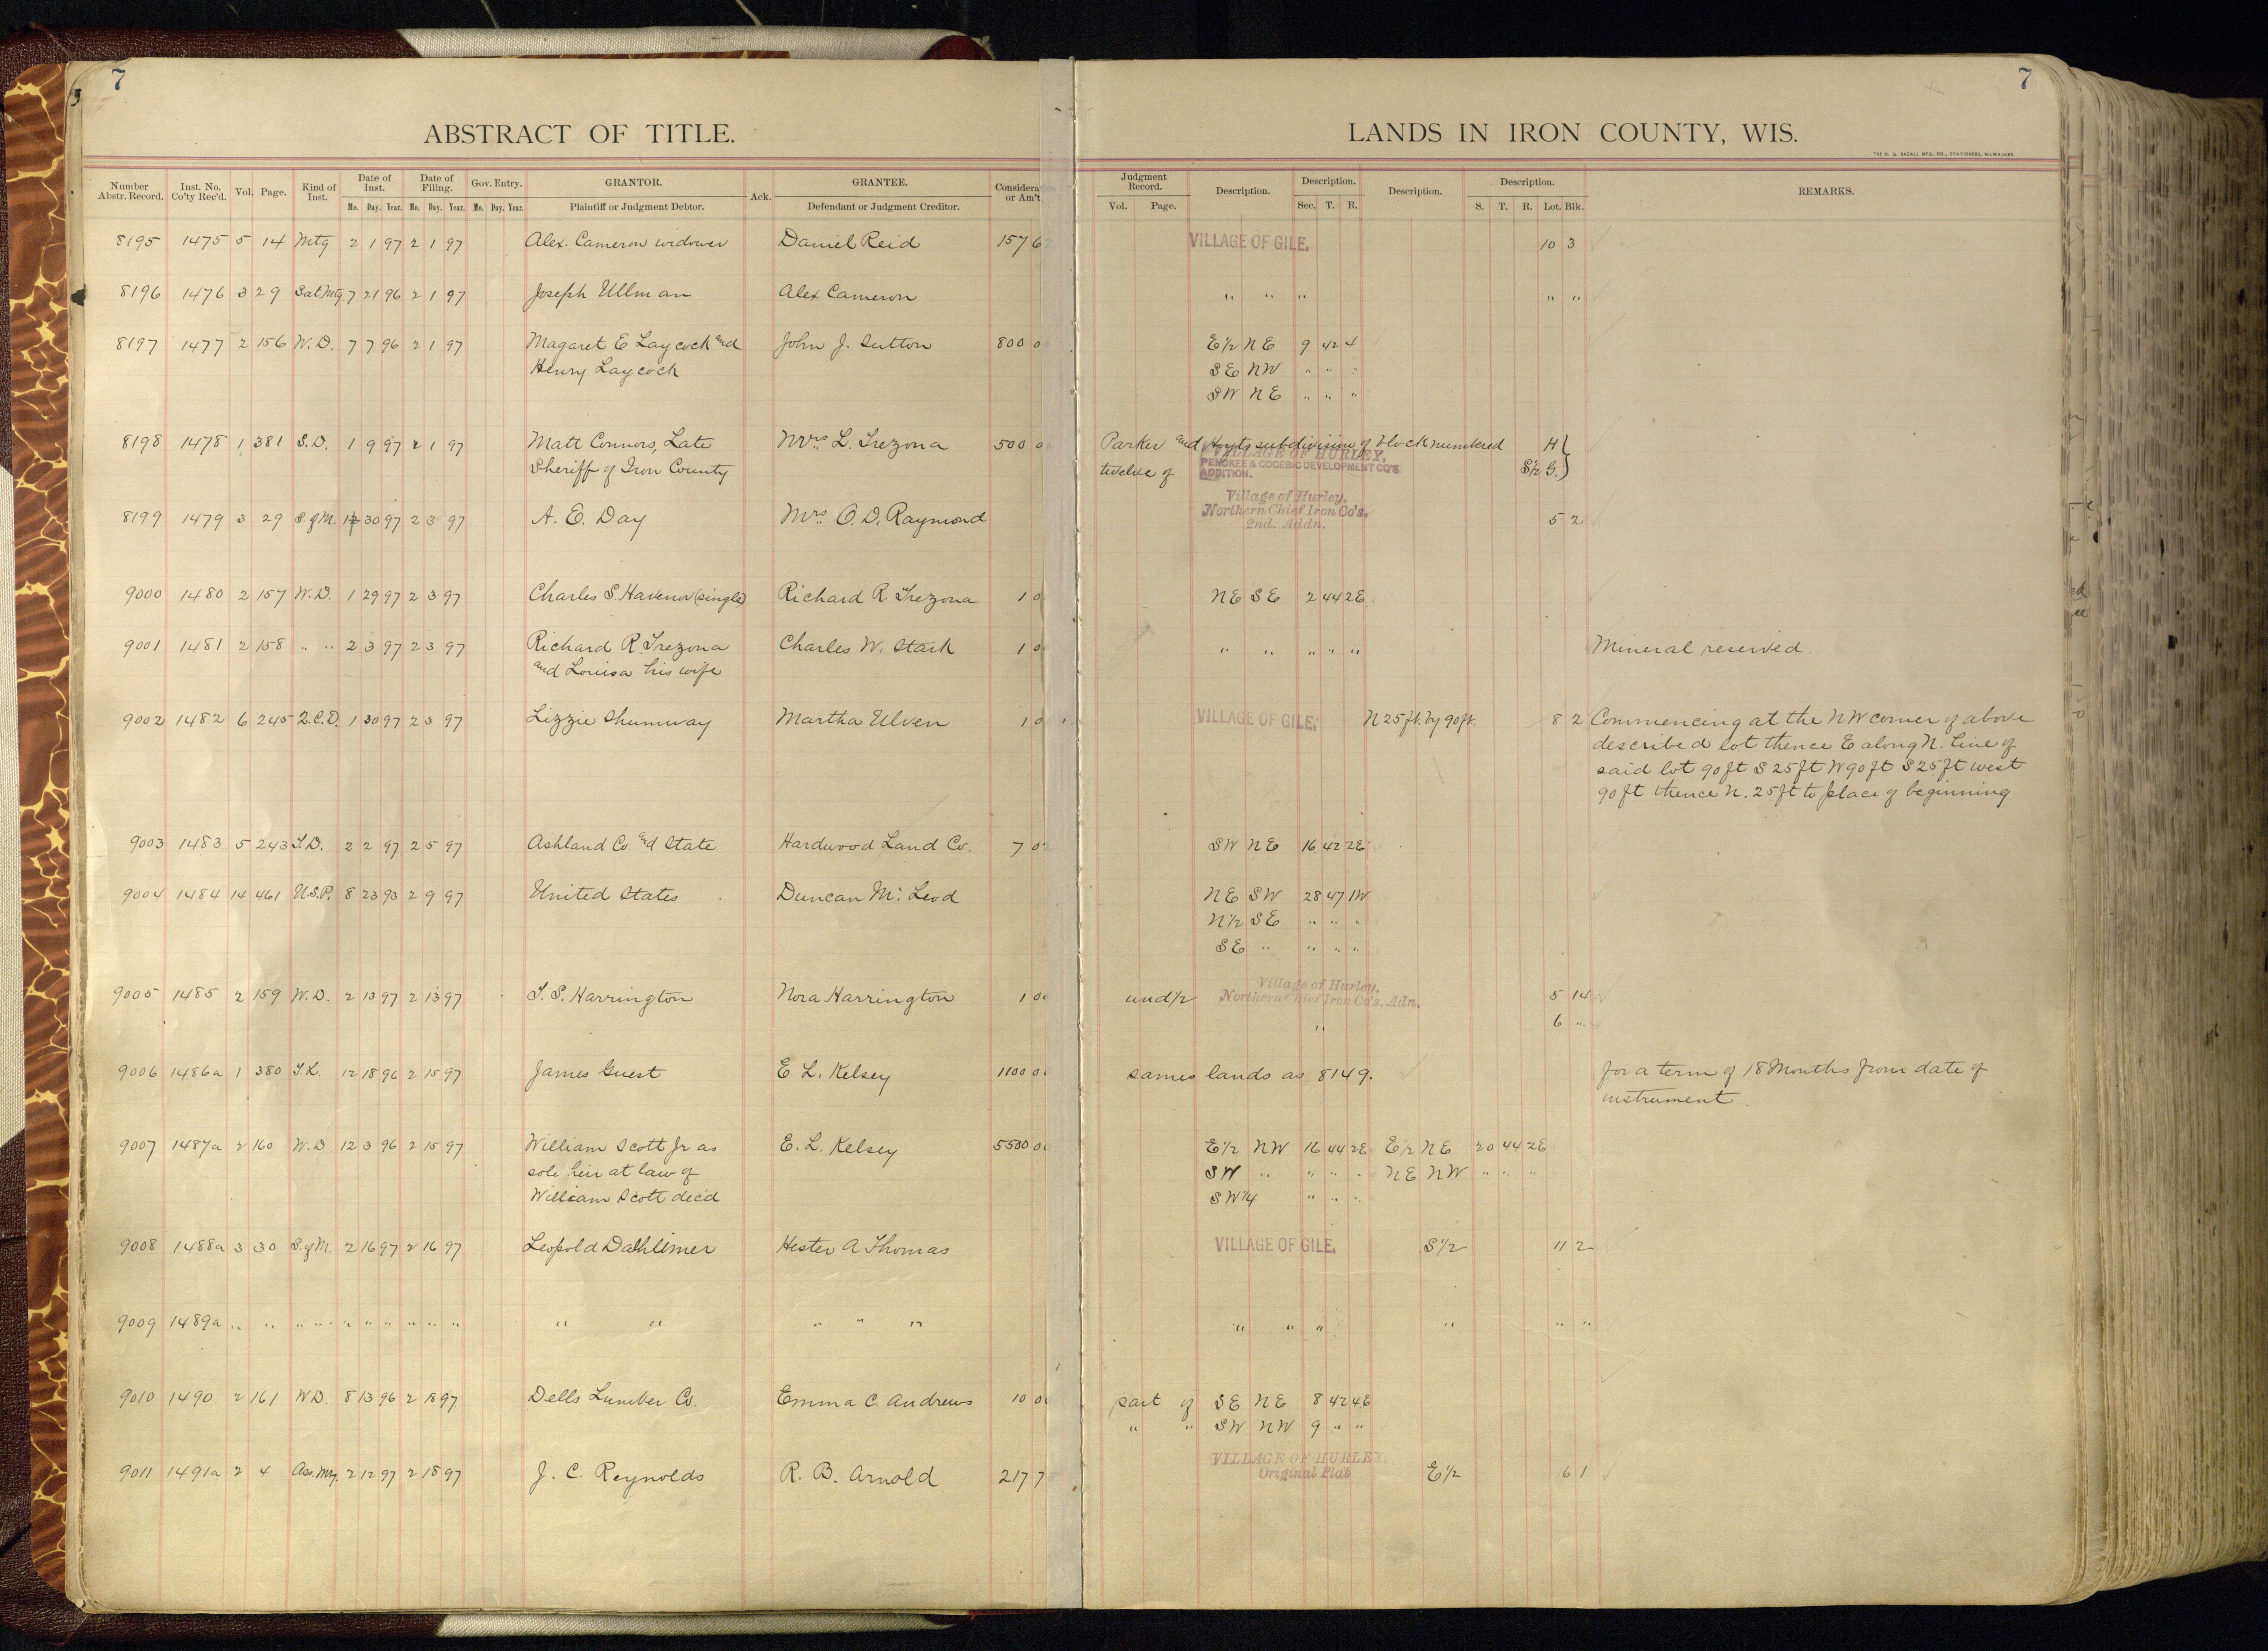 7
7
ABSTRACT OF TITLE.
LANDS IN IRON COUNTY, WIS.
Number Abstr. Record. Inst. No. Co'ty Rec'd. Vol. Page. Kind of Inst. Date of Inst. Mo. Day. Year. Date of Filing. Mo. Day. Year. Gov. Entry. Mo. Day. Year. GRANTOR. Plaintiff or Judgment Debtor. Ack. GRANTEE. Defendant or Judgment Creditor. Consideration or Am't
Judgment Record. Vol. Page. Description. Description. Sec. T. R. Description. Description. S. T. R. Lot. Blk. REMARKS.
8195 1475 5 14 Mtg 2 1 97 2 1 97 Alex. Cameron widower Daniel Reid 157 62 VILLAGE OF GILE. 10 3
8196 1476 3 29 Sat Mtg 7 21 96 2 1 97 Joseph Ullman Alex Cameron " " " " "
8197 1477 2 156 W. D. 7 7 96 2 1 97 Magaret E Laycock and John J. Sutton 800 0 E½ NE 9 42 4
Henry Laycock SE NW " " "
SW NE " " "
8198 1478 1 381 S. D. 1 9 97 2 1 97 Matt Connors, Late Mrs L. Trezona 500 0 Parker and Hoyts subdivision of block numbered H
Sheriff of Iron County twelve of VILLAGE OF HURLEY, PENOKEE & GOGEBIC DEVELOPMENT CO'S ADDITION. S½ G.
8199 1479 3 29 S. of M. 1 30 97 2 3 97 A. E. Day Mrs O. D. Raymond Village of Hurley, Northern Chief Iron Co's, 2nd. Addn. 5 2
9000 1480 2 157 W. D. 1 29 97 2 3 97 Charles S. Havenor (single) Richard R. Trezona 1 0 NE SE 2 44 2E
9001 1481 2 158 " " 2 3 97 2 3 97 Richard R. Trezona Charles W. Stark 1 0 " " " " " Mineral reserved.
and Louisa his wife
9002 1482 6 245 Q.C.D. 1 30 97 2 3 97 Lizzie Shumway Martha Ulven 1 0 VILLAGE OF GILE. N 25 ft. by 90 ft. 8 2 Commencing at the NW corner of above
described lot thence E along N. line of
said lot 90 ft S 25 ft W 90 ft S 25 ft west
90 ft thence N. 25 ft to place of beginning
9003 1483 5 243 T.D. 2 2 97 2 5 97 Ashland Co. and State Hardwood Land Co. 7 02 SW NE 16 42 2E
9004 1484 14 461 U.S.P. 8 23 93 2 9 97 United States Duncan Mc Leod NE SW 28 47 1W
N½ SE " " "
SE " " " "
9005 1485 2 159 W. D. 2 13 97 2 13 97 T. S. Harrington Nora Harrington 1 00 und ½ Village of Hurley, Northern Chief Iron Co's, Adn. 5 14
" 6 "
9006 1486a 1 380 T.L. 12 18 96 2 15 97 James Guest E L. Kelsey 1100 00 sames lands as 8149. for a term of 18 Months from date of
instrument
9007 1487a 2 160 W. D 12 3 96 2 15 97 William Scott Jr as E. L. Kelsey 5500 00 E½ NW 16 44 2E E½ NE 20 44 2E
sole heir at law of SW " " " " NE NW " " "
William Scott dec'd SW¼ " " "
9008 1488a 3 30 S. of M. 2 16 97 2 16 97 Leopold Dahlimer Hester A Thomas VILLAGE OF GILE. S½ 11 2
9009 1489a " " " " " " " " " " " " " " " " " " " " " "
9010 1490 2 161 WD. 8 13 96 2 18 97 Dells Lumber Co. Emma C. Andrews 10 00 part of SE NE 8 42 4E
" " SW NW 9 " "
9011 1491a 2 4 Ass. Mtg. 2 12 97 2 18 97 J. C. Reynolds R. B. Arnold 217 7 VILLAGE OF HURLEY, Original Plat E½ 6 1